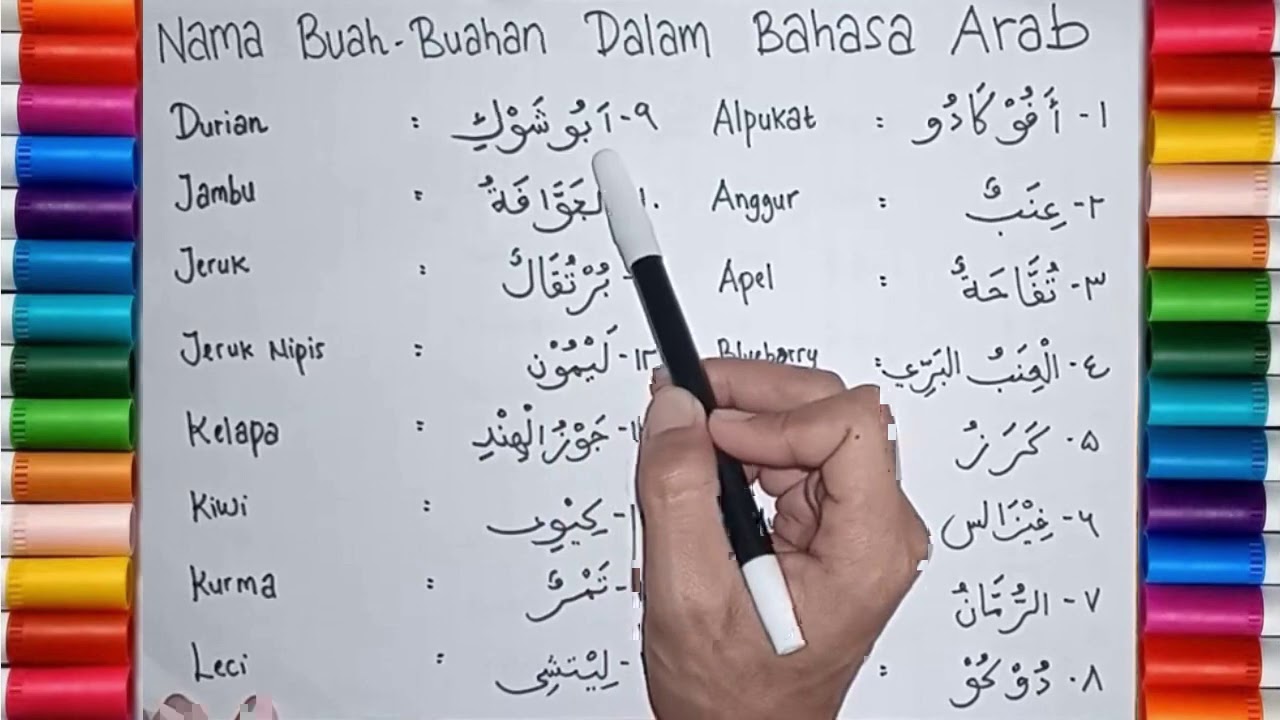 Nama Buah-Buahan Dalam Bahasa Arab
١- أَفُوْكَادُو : Alpukat
٢- عِنَبٌ : Anggur
٣- تُفَّاحَةٌ : Apel
٤- الْعِنَبُ البَرِّي : Blueberry
٥- كَرَزُ
٦- غِيْزَالس
٧- الرُّمَّانُ
٨- دُوْكُوْ :
٩- اَبُو شَوْكٍ : Durian
: Jambu
بُرْتُقَالٌ : Jeruk
١٢- لَيْمُوْن : Jeruk Nipis
جَوْزُ الْهِنْدِ : Kelapa
كِيْوِي : Kiwi
تَمْرٌ : Kurma
لِيْتشِي : Leci